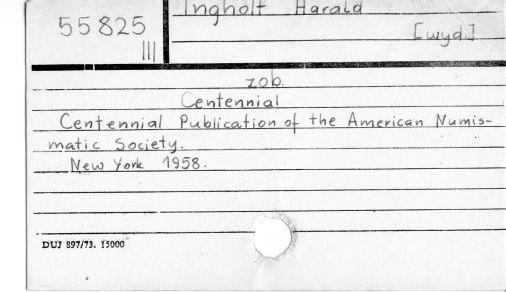 55825
III
Ingholt Harald
[wyd.]
zob.
Centennial
Centennial Publication of the American Numis-
matic Society.
New York 1958.
DUJ 897/73. 15000